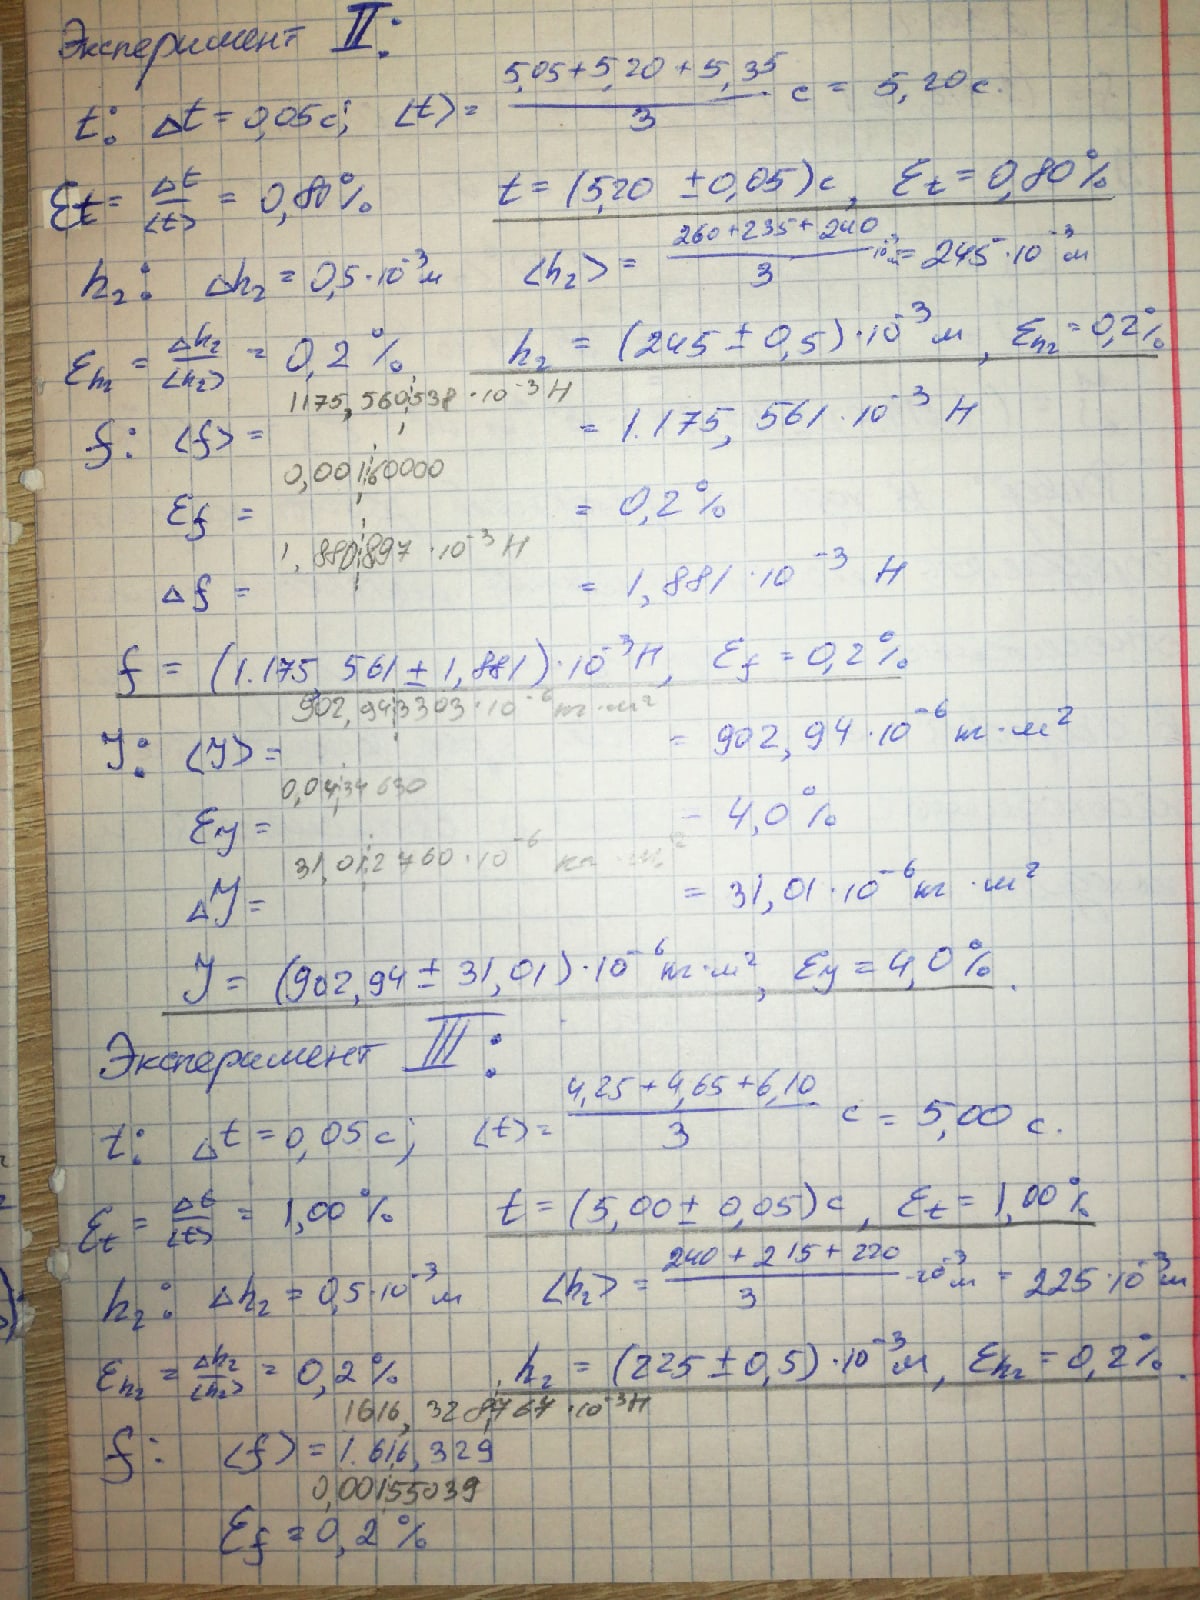 Эксперимент II:
t: Δt = 0,05 с; ⟨t⟩ = (5,05 + 5,20 + 5,35)/3 с = 5,20 с.
Ɛt = Δt/⟨t⟩ = 0,80% t = (5,20 ± 0,05) с, Ɛt = 0,80%
h₂: Δh₂ = 0,5·10⁻³ м ⟨h₂⟩ = (260 + 235 + 240)/3 ·10⁻³ м = 245·10⁻³ м
Ɛh₂ = Δh₂/⟨h₂⟩ = 0,2% h₂ = (245 ± 0,5)·10⁻³ м, Ɛh₂ = 0,2%
1175,560538·10⁻³ Н
f: ⟨f⟩ = = 1.175,561·10⁻³ Н
0,00160000
Ɛf = = 0,2%
1,880897·10⁻³ Н
Δf = = 1,881·10⁻³ Н
f = (1.175,561 ± 1,881)·10⁻³ Н, Ɛf = 0,2%
902,943303·10⁻⁶ кг·м²
J: ⟨J⟩ = = 902,94·10⁻⁶ кг·м²
0,0434630
ƐJ = = 4,0%
31,012760·10⁻⁶ кг·м²
ΔJ = = 31,01·10⁻⁶ кг·м²
J = (902,94 ± 31,01)·10⁻⁶ кг·м², ƐJ = 4,0%.
Эксперимент III:
t: Δt = 0,05 с; ⟨t⟩ = (4,25 + 4,65 + 6,10)/3 с = 5,00 с.
Ɛt = Δt/⟨t⟩ = 1,00% t = (5,00 ± 0,05) с, Ɛt = 1,00%
h₂: Δh₂ = 0,5·10⁻³ м ⟨h₂⟩ = (240 + 215 + 220)/3 ·10⁻³ м = 225·10⁻³ м
Ɛh₂ = Δh₂/⟨h₂⟩ = 0,2% h₂ = (225 ± 0,5)·10⁻³ м, Ɛh₂ = 0,2%.
1616,328767·10⁻³ Н
f: ⟨f⟩ = 1.616,329
0,00155039
Ɛf = 0,2%